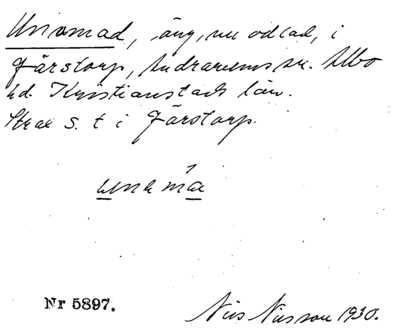 Unnamad, äng, nu odlad, i
Färstorp, Andrarums sn. Albo
hd. Kristianstads län.
Strax s. t i Färstorp.
unamá
Nr 5897.
Nils Nilsson 1930.